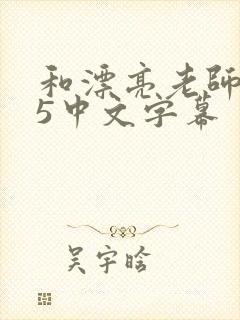 和漂亮老師
5中文字幕
吴宇晗